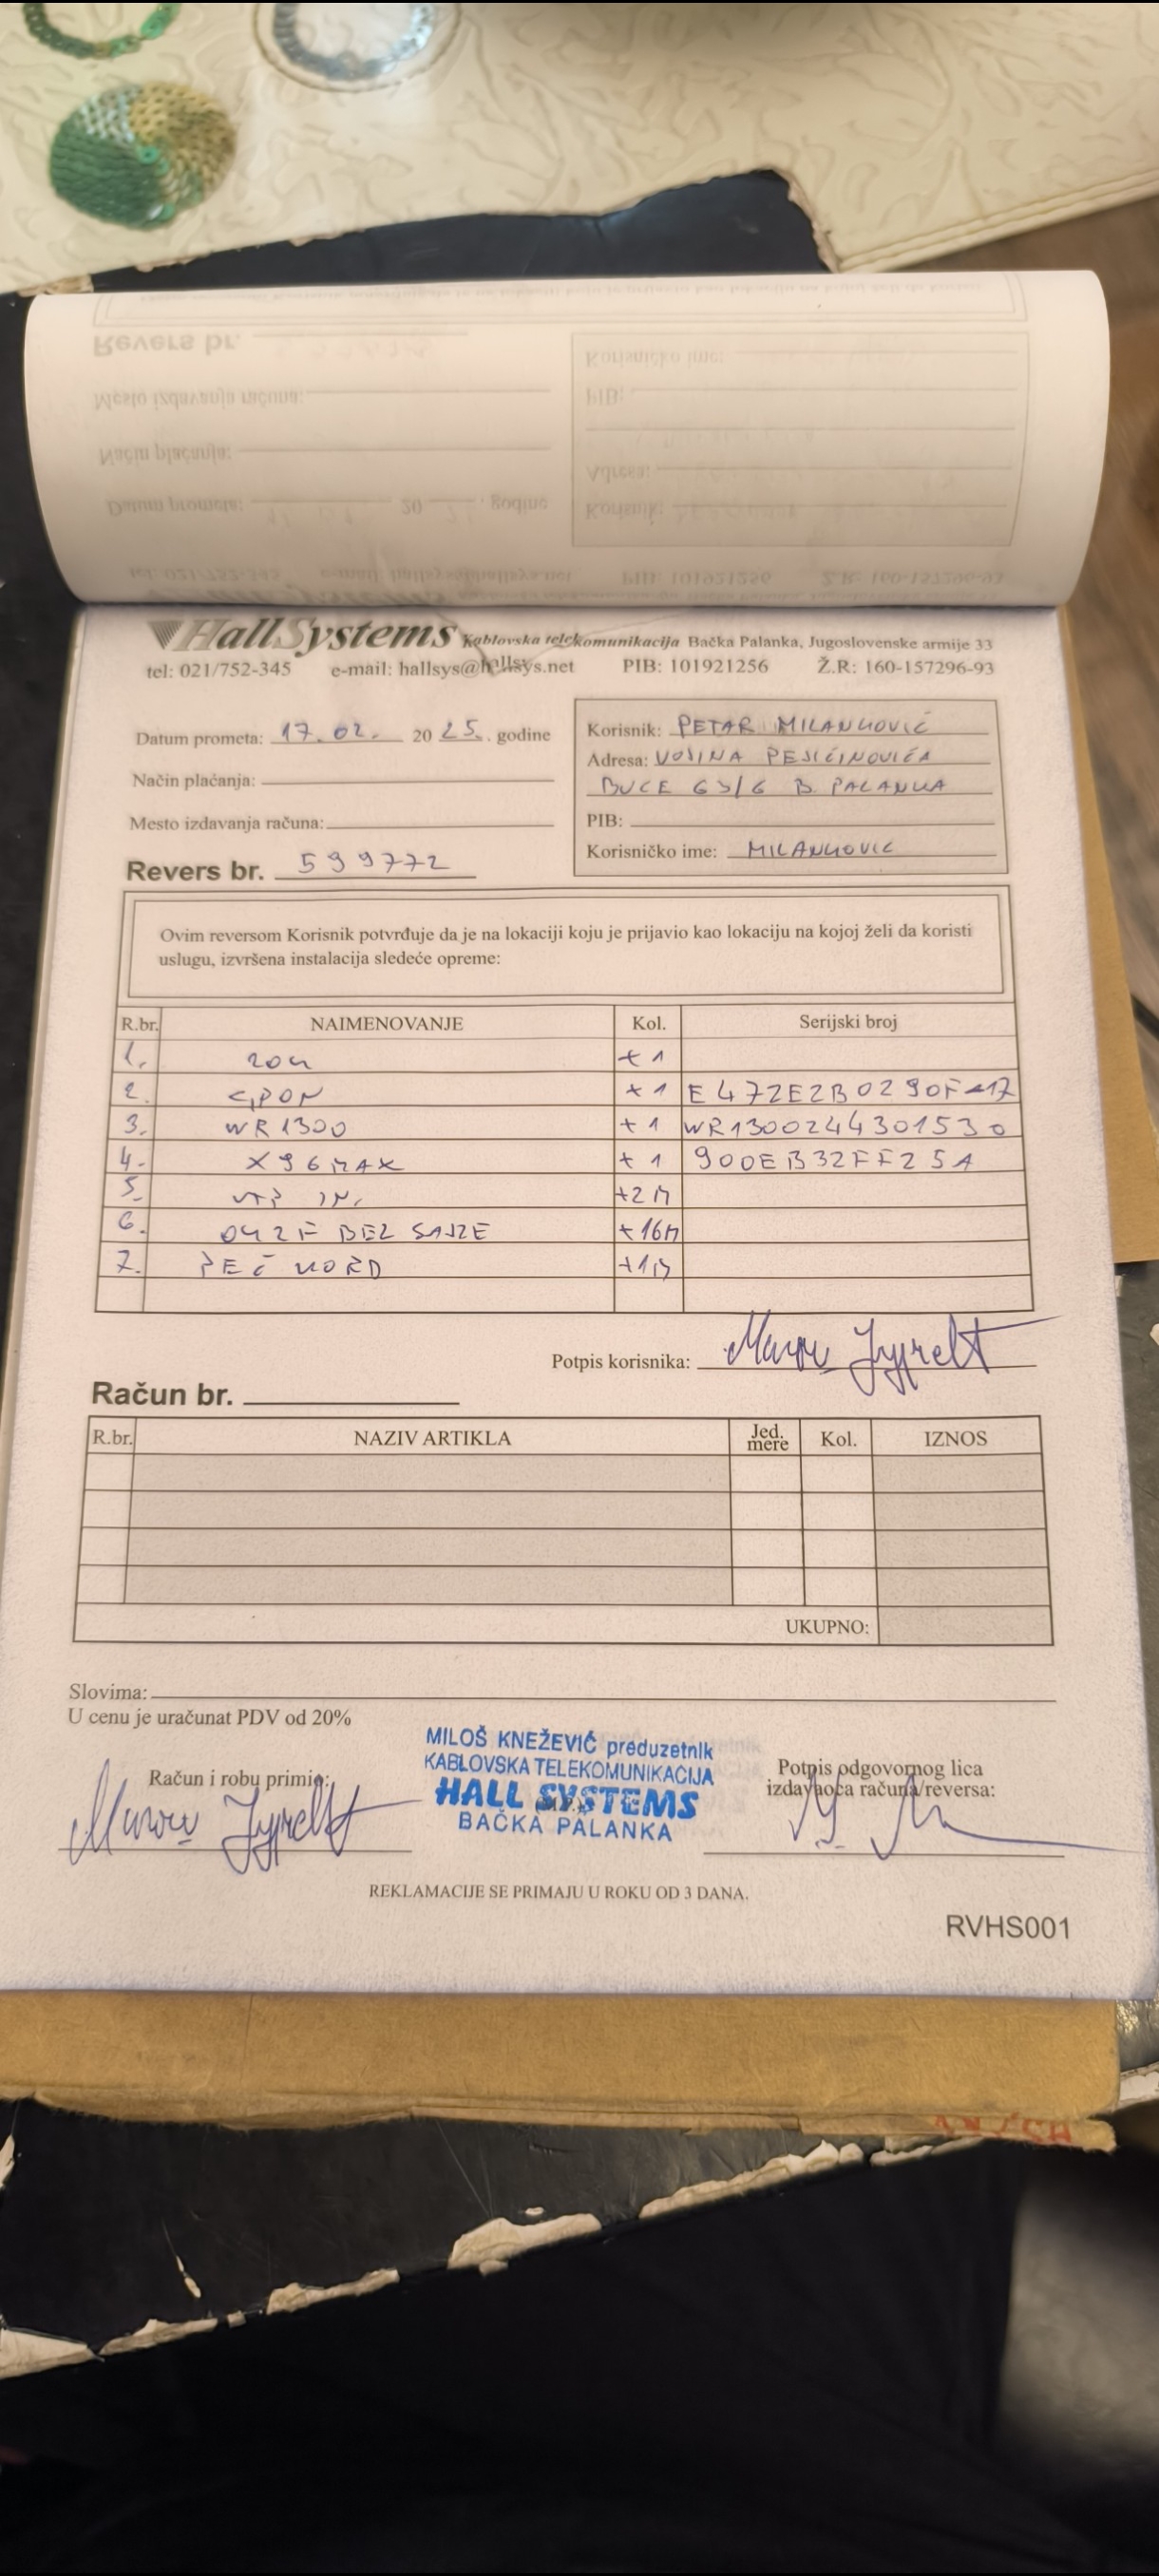 HallSystems Kablovska telekomunikacija Bačka Palanka, Jugoslovenske armije 33
tel: 021/752-345 e-mail: hallsys@hallsys.net PIB: 101921256 Ž.R: 160-157296-93
Datum prometa: 17.02. 2025. godine
Način plaćanja:
Mesto izdavanja računa:
Revers br. 599772
Korisnik: PETAR MILANKOVIĆ
Adresa: VOJINA
BUCE 63/6 B. PALANKA
PIB:
Korisničko ime: MILANKOVIC
Ovim reversom Korisnik potvrđuje da je na lokaciji koju je prijavio kao lokaciju na kojoj želi da koristi
uslugu, izvršena instalacija sledeće opreme:
R.br. NAIMENOVANJE Kol. Serijski broj
1. +1
2. GPON +1 E472E2B0290F
3. WR1300 +1 WR1300244301530
4. X96MAX +1 900EB32FF25A
5. +2M
6. BEZ SAJZE +16M
7. +1M
Potpis korisnika:
Račun br.
R.br. NAZIV ARTIKLA Jed. mere Kol. IZNOS
UKUPNO:
Slovima:
U cenu je uračunat PDV od 20%
MILOŠ KNEŽEVIĆ preduzetnik
KABLOVSKA TELEKOMUNIKACIJA
HALL SYSTEMS
BAČKA PALANKA
Račun i robu primio:
Potpis odgovornog lica
izdavaoca računa/reversa:
REKLAMACIJE SE PRIMAJU U ROKU OD 3 DANA.
RVHS001